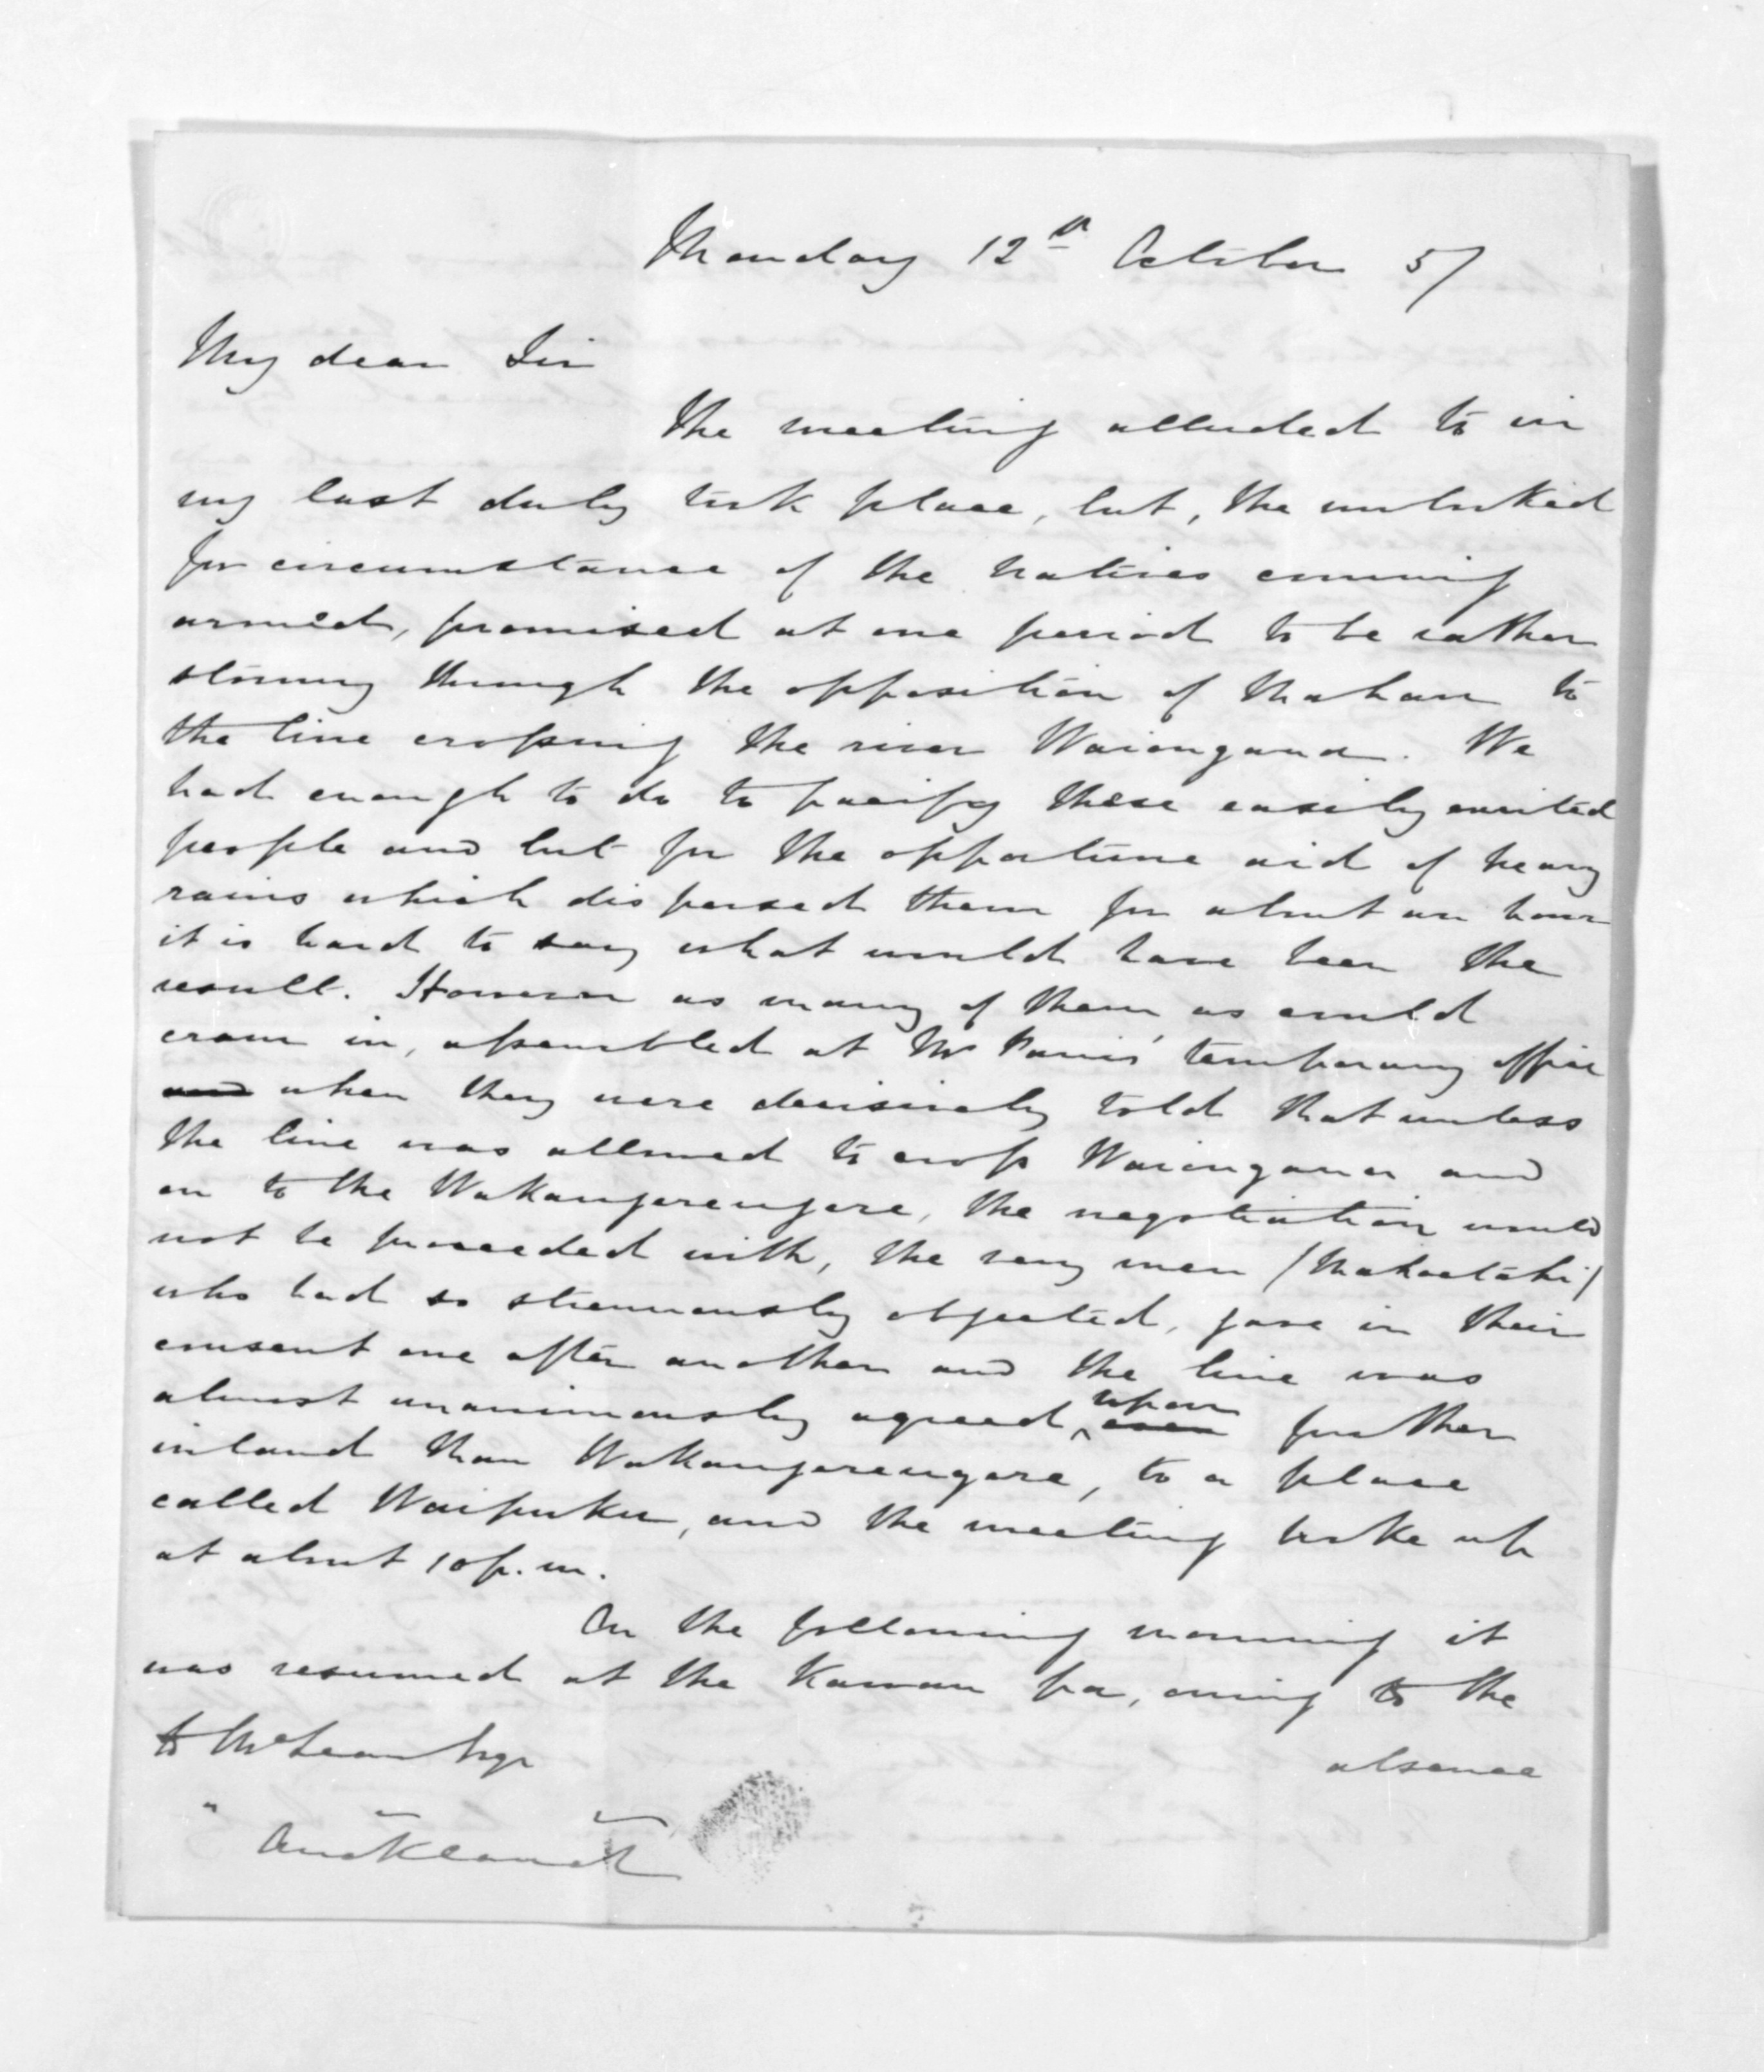 Monday 12th October 57
My dear Sir
The meeting alluded to in
my last duly took place, but, the unlooked
for circumstance of the Natives coming
armed, promised at one period to be rather
stormy through the opposition of Mahau to
the line crossing the river Waiongana. We
had enough to do to pacify these easily excited
people and but for the opportune aid of heavy
rains which dispersed them for about an hour
it is hard to say what would have been the
result. However as many of them as could
cram in, assembled at Mr Parris' temporary office
and when they were decisively told that unless
the line was allowed to cross Waiongana and
on to the Wakangerengere, the negotiation would
not be proceeded with, the very men (Mahoetahi)
who had so strenuously objected, gave in their
consent one after another and the line was
almost unanimously agreed upon even further
inland than Wakangerengere, to a place
called Waipuku, and the meeting broke up
at about 10 p.m.
On the following morning it
was resumed at the Kawau pa, owing to the
absence
to McLean Esqr
" Auckland